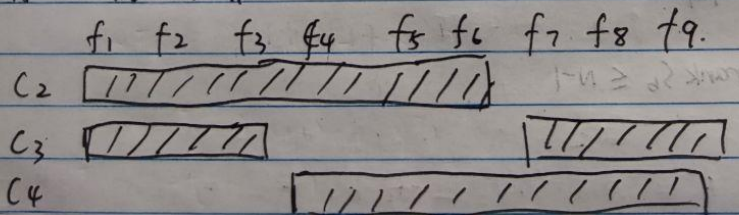 f1 f2 f3 f4 f5 f6 f7 f8 f9.
C2
C3
C4